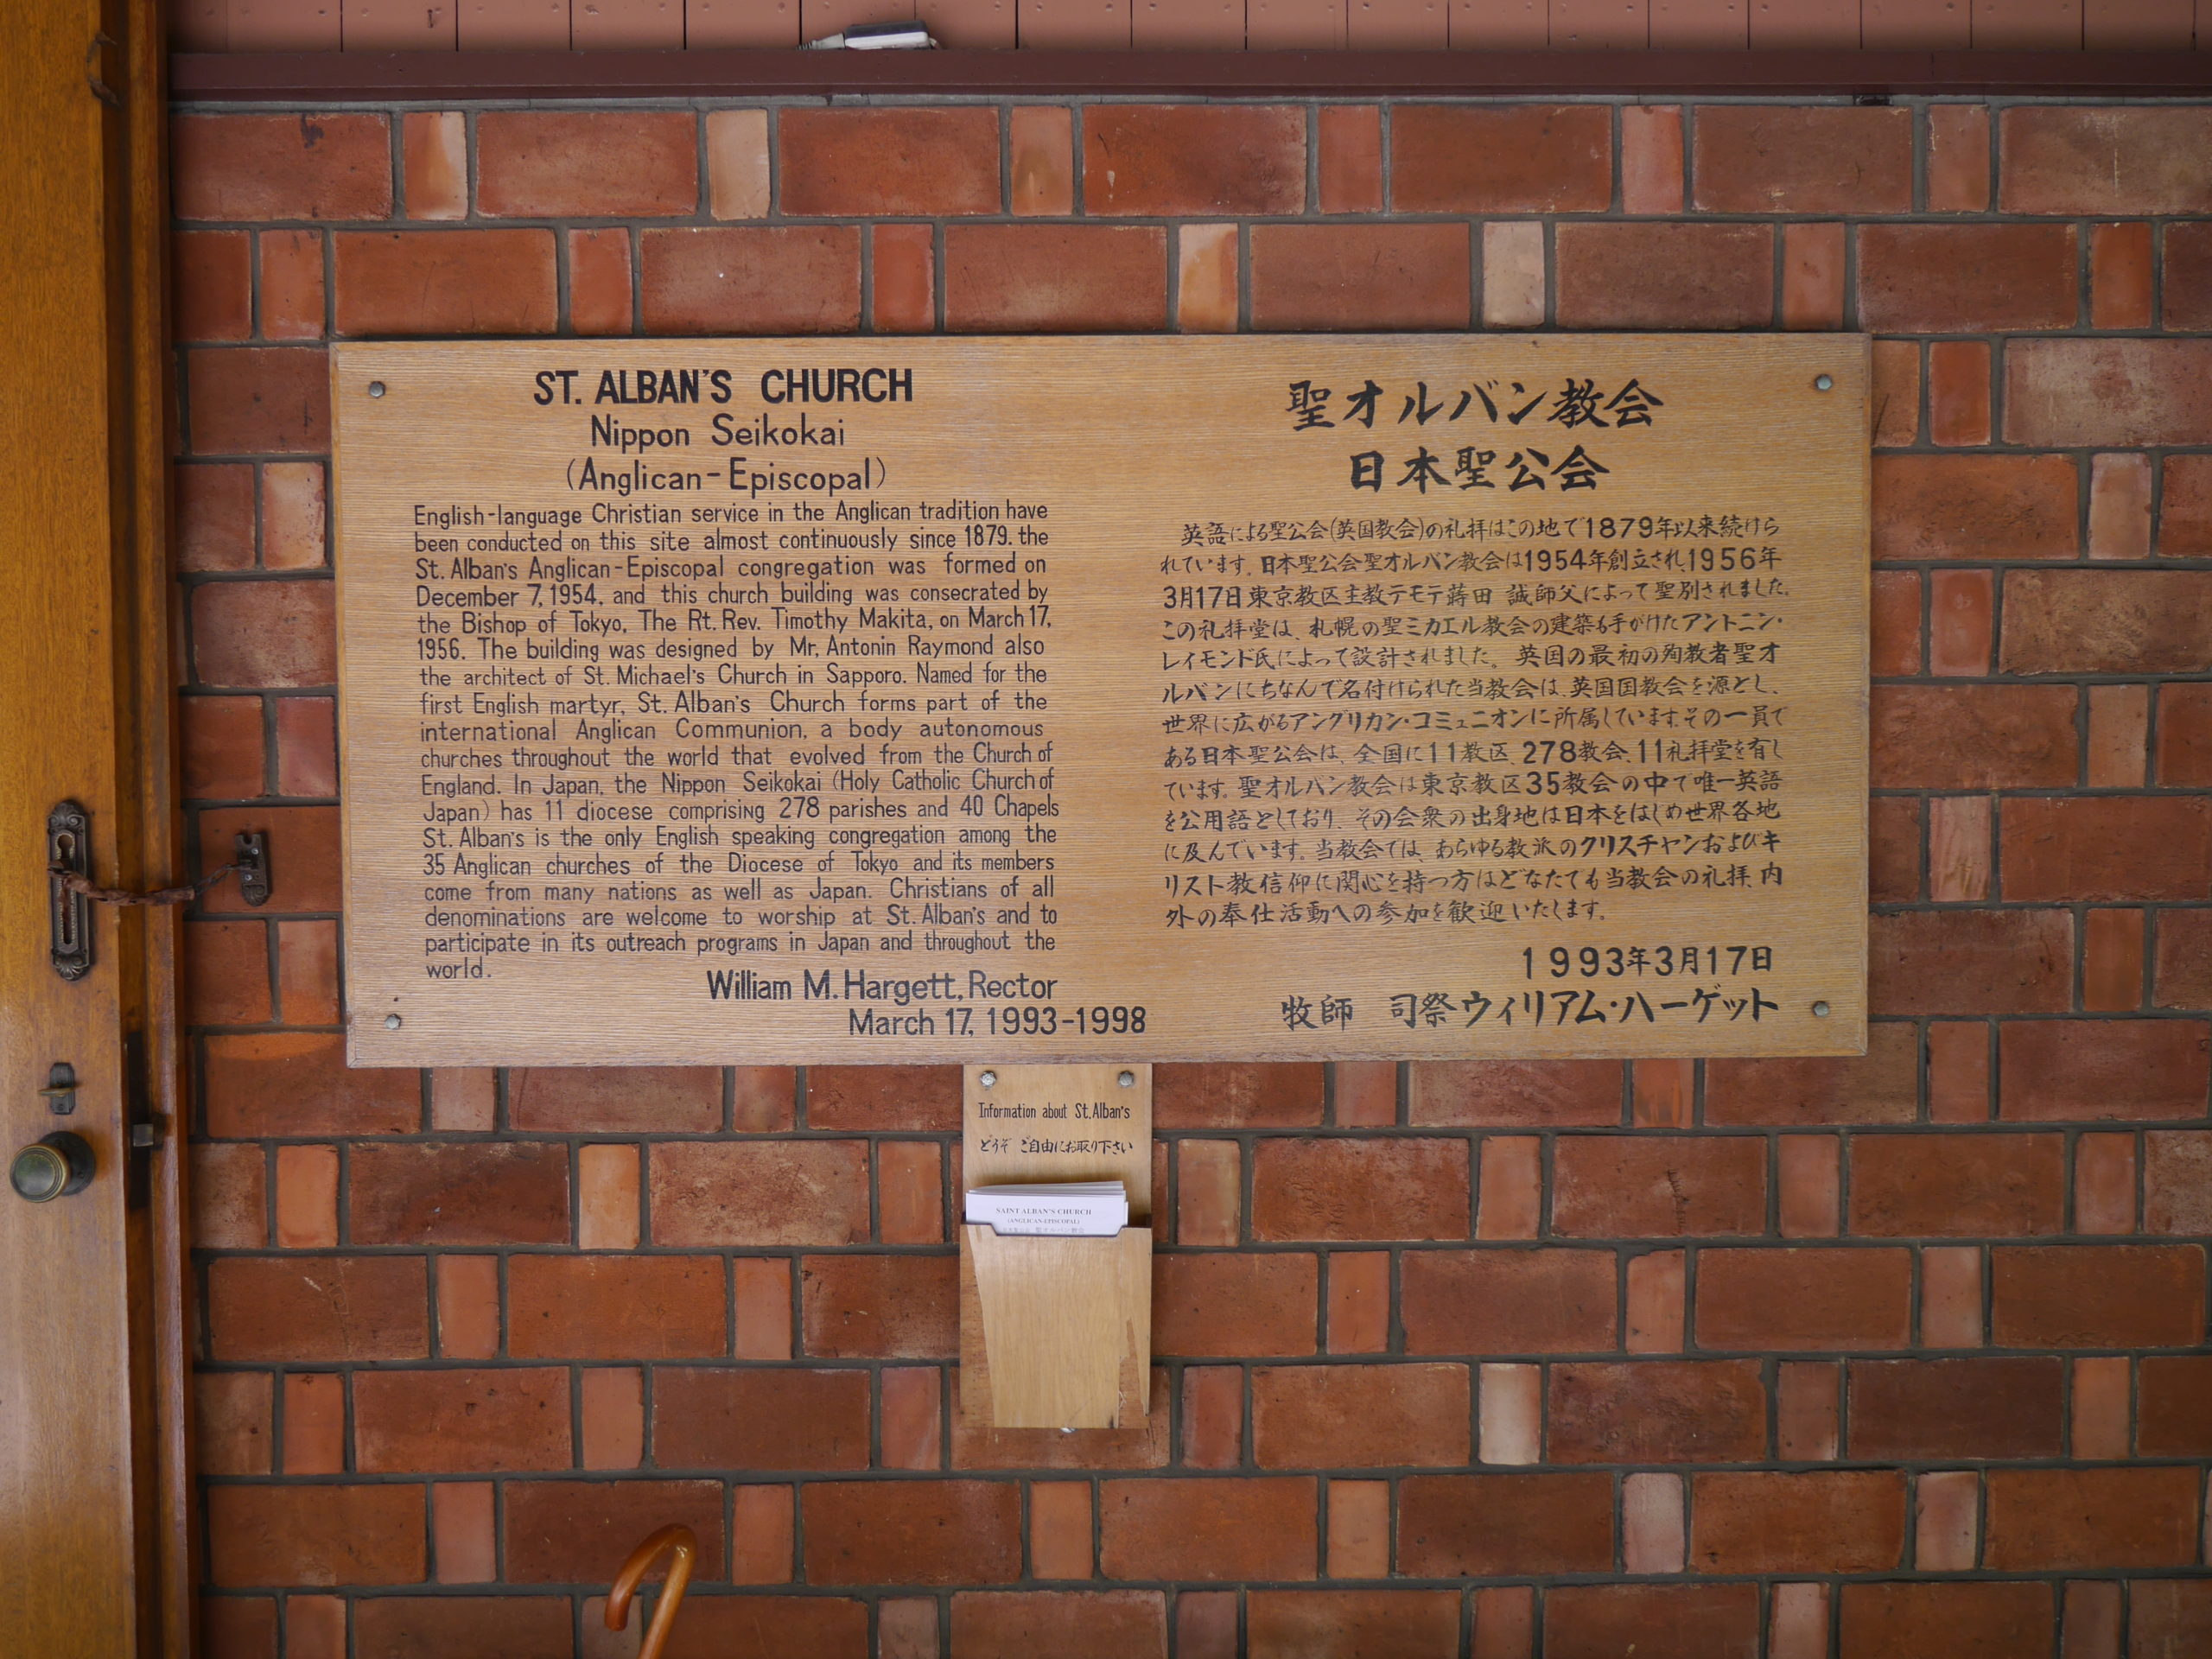 ST. ALBAN'S CHURCH
Nippon Seikokai
(Anglican-Episcopal)
English-language Christian service in the Anglican tradition have
been conducted on this site almost continuously since 1879. the
St. Alban's Anglican-Episcopal congregation was formed on
December 7, 1954, and this church building was consecrated by
the Bishop of Tokyo, The Rt. Rev. Timothy Makita, on March 17,
1956. The building was designed by Mr, Antonin Raymond also
the architect of St. Michael's Church in Sapporo. Named for the
first English martyr, St. Alban's Church forms part of the
international Anglican Communion, a body autonomous
churches throughout the world that evolved from the Church of
England. In Japan, the Nippon Seikokai (Holy Catholic Church of
Japan) has 11 diocese comprising 278 parishes and 40 Chapels
St. Alban's is the only English speaking congregation among the
35 Anglican churches of the Diocese of Tokyo and its members
come from many nations as well as Japan. Christians of all
denominations are welcome to worship at St. Alban's and to
participate in its outreach programs in Japan and throughout the
world.
William M. Hargett, Rector
March 17, 1993-1998
聖オルバン教会
日本聖公会
英語による聖公会(英国教会)の礼拝はこの地で1879年以来続けら
れています。日本聖公会聖オルバン教会は1954年創立され、1956年
3月17日東京教区主教テモテ蒔田 誠師父によって聖別されました。
この礼拝堂は、札幌の聖ミカエル教会の建築も手がけたアントニン・
レイモンド氏によって設計されました。英国の最初の殉教者聖オ
ルバンにちなんで名付けられた当教会は、英国国教会を源とし、
世界に広がるアングリカン・コミュニオンに所属しています。その一員で
ある日本聖公会は、全国に11教区、278教会、11礼拝堂を有し
ています。聖オルバン教会は東京教区35教会の中で唯一英語
を公用語としており、その会衆の出身地は日本をはじめ世界各地
に及んでいます。当教会では、あらゆる教派のクリスチャンおよびキ
リスト教信仰に関心を持つ方はどなたでも当教会の礼拝、内
外の奉仕活動への参加を歓迎いたします。
1993年3月17日
牧師 司祭ウィリアム・ハーゲット
Information about St. Alban's
どうぞ ご自由にお取り下さい
SAINT ALBAN'S CHURCH
(ANGLICAN-EPISCOPAL)
聖オルバン教会